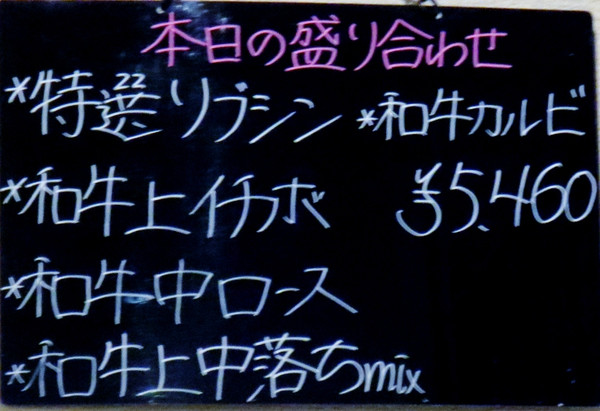 本日の盛り合わせ
*特選リブシン
*和牛カルビ
*和牛上イチボ
¥5,460
*和牛中ロース
*和牛上中落ちmix